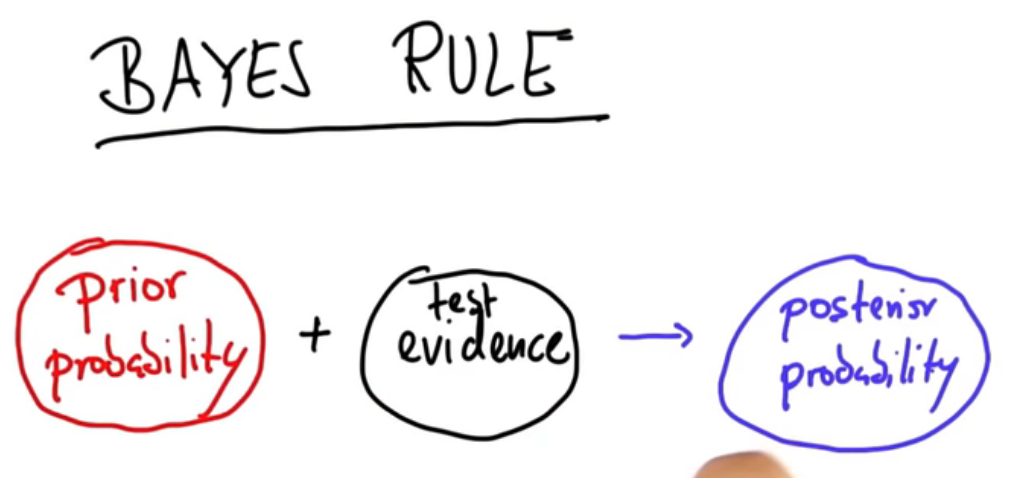 BAYES RULE
prior
probability
+
test
evidence
→
posterior
probability